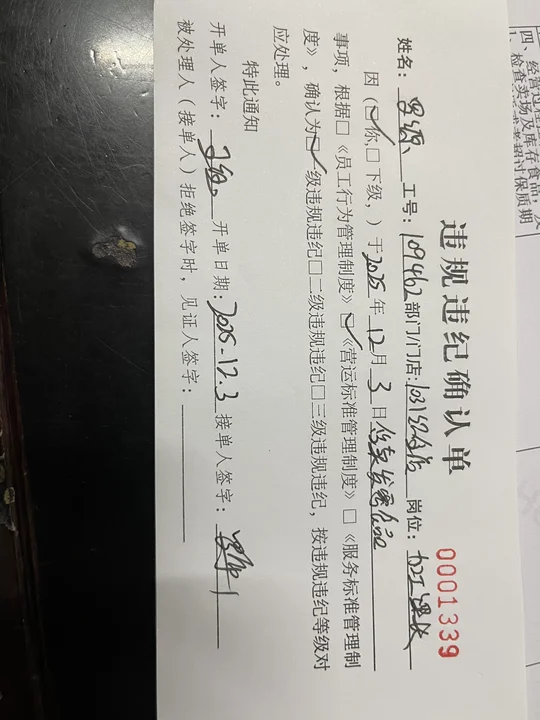 四、经营过程
1、检查卖场及库存食品，
超过保质期
违规违纪确认单
0001339
姓名： 工号：109462部门/门店：103 店 岗位：加工课长
因（☑你、□下级．）于2025年12月3日
事项，根据□《员工行为管理制度》☑《营运标准管理制度》□《服务标准管理制
度》，确认为☑一级违规违纪□二级违规违纪□三级违规违纪，按违规违纪等级对
应处理。
特此通知
开单人签字： 开单日期：2025-12.3 接单人签字：
被处理人（接单人）拒绝签字时，见证人签字：